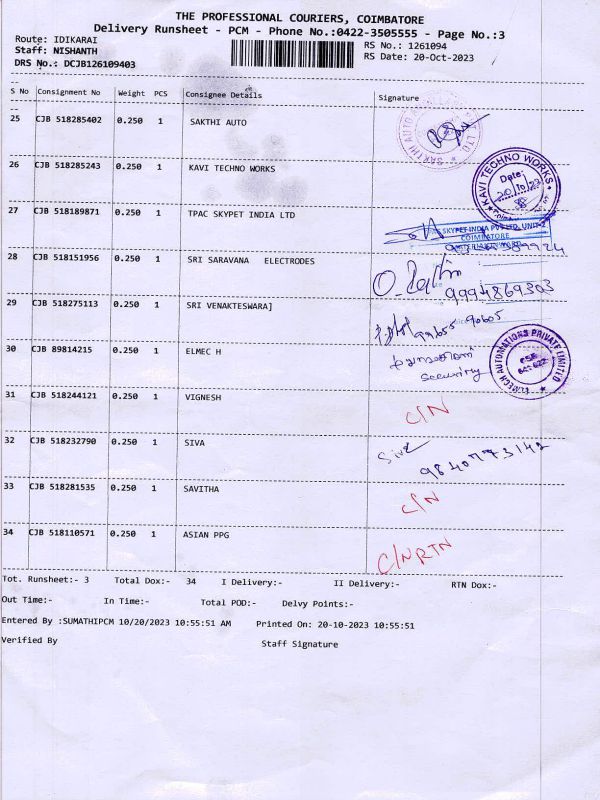 THE PROFESSIONAL COURIERS, COIMBATORE
Delivery Runsheet - PCM - Phone No.:0422-3505555 - Page No.:3
Route: IDIKARAI RS No.: 1261094
Staff: NISHANTH RS Date: 20-Oct-2023
DRS No.: DCJB126109403
S No Consignment No Weight PCS Consignee Details Signature
25 CJB 518285402 0.250 1 SAKTHI AUTO
26 CJB 518285243 0.250 1 KAVI TECHNO WORKS
KAVI TECHNO WORKS
Date:
20/10/23
27 CJB 518189871 0.250 1 TPAC SKYPET INDIA LTD
SKYPET INDIA PVT LTD, UNIT-2
COIMBATORE
28 CJB 518151956 0.250 1 SRI SARAVANA ELECTRODES
9994869303
29 CJB 518275113 0.250 1 SRI VENAKTESWARA]
99655 90605
30 CJB 89814215 0.250 1 ELMEC H
Security
AUTOMATIONS PRIVATE LIMITED
31 CJB 518244121 0.250 1 VIGNESH
C/N
32 CJB 518232790 0.250 1 SIVA
Siva
9840773142
33 CJB 518281535 0.250 1 SAVITHA
C/N
34 CJB 518110571 0.250 1 ASIAN PPG
C/N RTN
Tot. Runsheet:- 3 Total Dox:- 34 I Delivery:- II Delivery:- RTN Dox:-
Out Time:- In Time:- Total POD:- Delvy Points:-
Entered By :SUMATHIPCM 10/20/2023 10:55:51 AM Printed On: 20-10-2023 10:55:51
Verified By Staff Signature